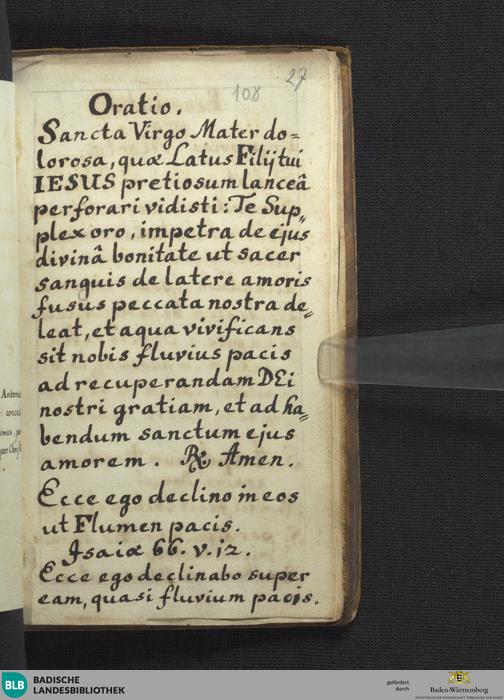 108 27
Oratio.
Sancta Virgo Mater do=
lorosa, quæ Latus Filij tui
IESUS pretiosum lanceâ
perforari vidisti: Te Sup„
plex oro, impetra de ejus
divinâ bonitate ut sacer
sanguis de latere amoris
fusus peccata nostra de„
leat, et aqua vivificans
sit nobis fluvius pacis
ad recuperandam DEi
nostri gratiam, et ad ha„
bendum sanctum ejus
amorem. ℞ Amen.
Ecce ego declino in eos
ut Flumen pacis.
Isaiæ 66. v. 12.
Ecce ego declinabo super
eam, quasi fluvium pacis.
Antonius
per Chris
BLB BADISCHE
LANDESBIBLIOTHEK
gefördert
durch
Baden-Württemberg